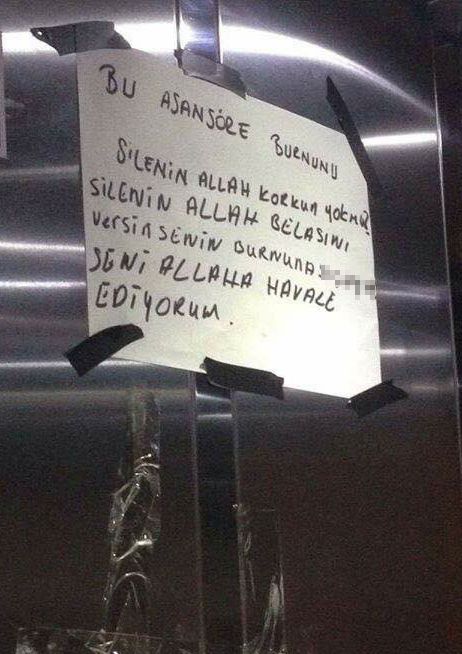 BU ASANSÖRE BURNUNU
SİLENİN ALLAH KORKUN YOKMU?
SİLENİN ALLAH BELASINI
VERSİN SENİN BURNUNA
SENİ ALLAHA HAVALE
EDİYORUM.